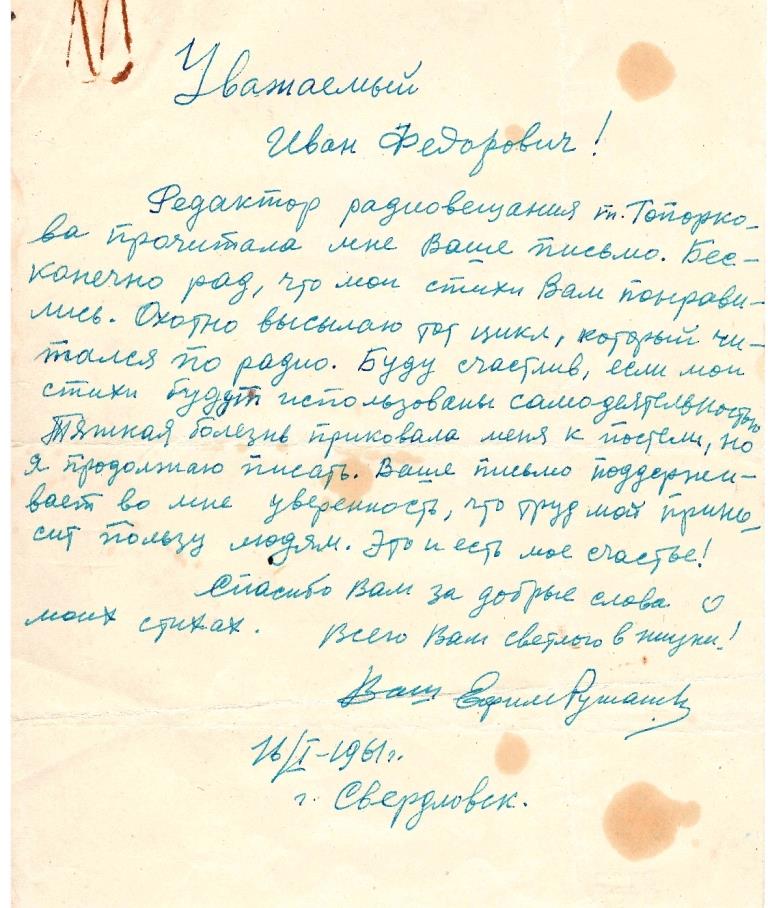 Уважаемый
Иван Федорович!
Редактор радиовещания т. Топорко-
ва прочитала мне Ваше письмо. Бес-
конечно рад, что мои стихи Вам понрави-
лись. Охотно высылаю тот цикл, который чи-
тался по радио. Буду счастлив, если мои
стихи будут использованы самодеятельностью
Тяжкая болезнь приковала меня к постели, но
я продолжаю писать. Ваше письмо поддержи-
вает во мне уверенность, что труд мой прино-
сит пользу людям. Это и есть мое счастье!
Спасибо Вам за добрые слова о
моих стихах. Всего Вам светлого в жизни!
Ваш Ефим Ружанский
16/I-1961г.
г. Свердловск.